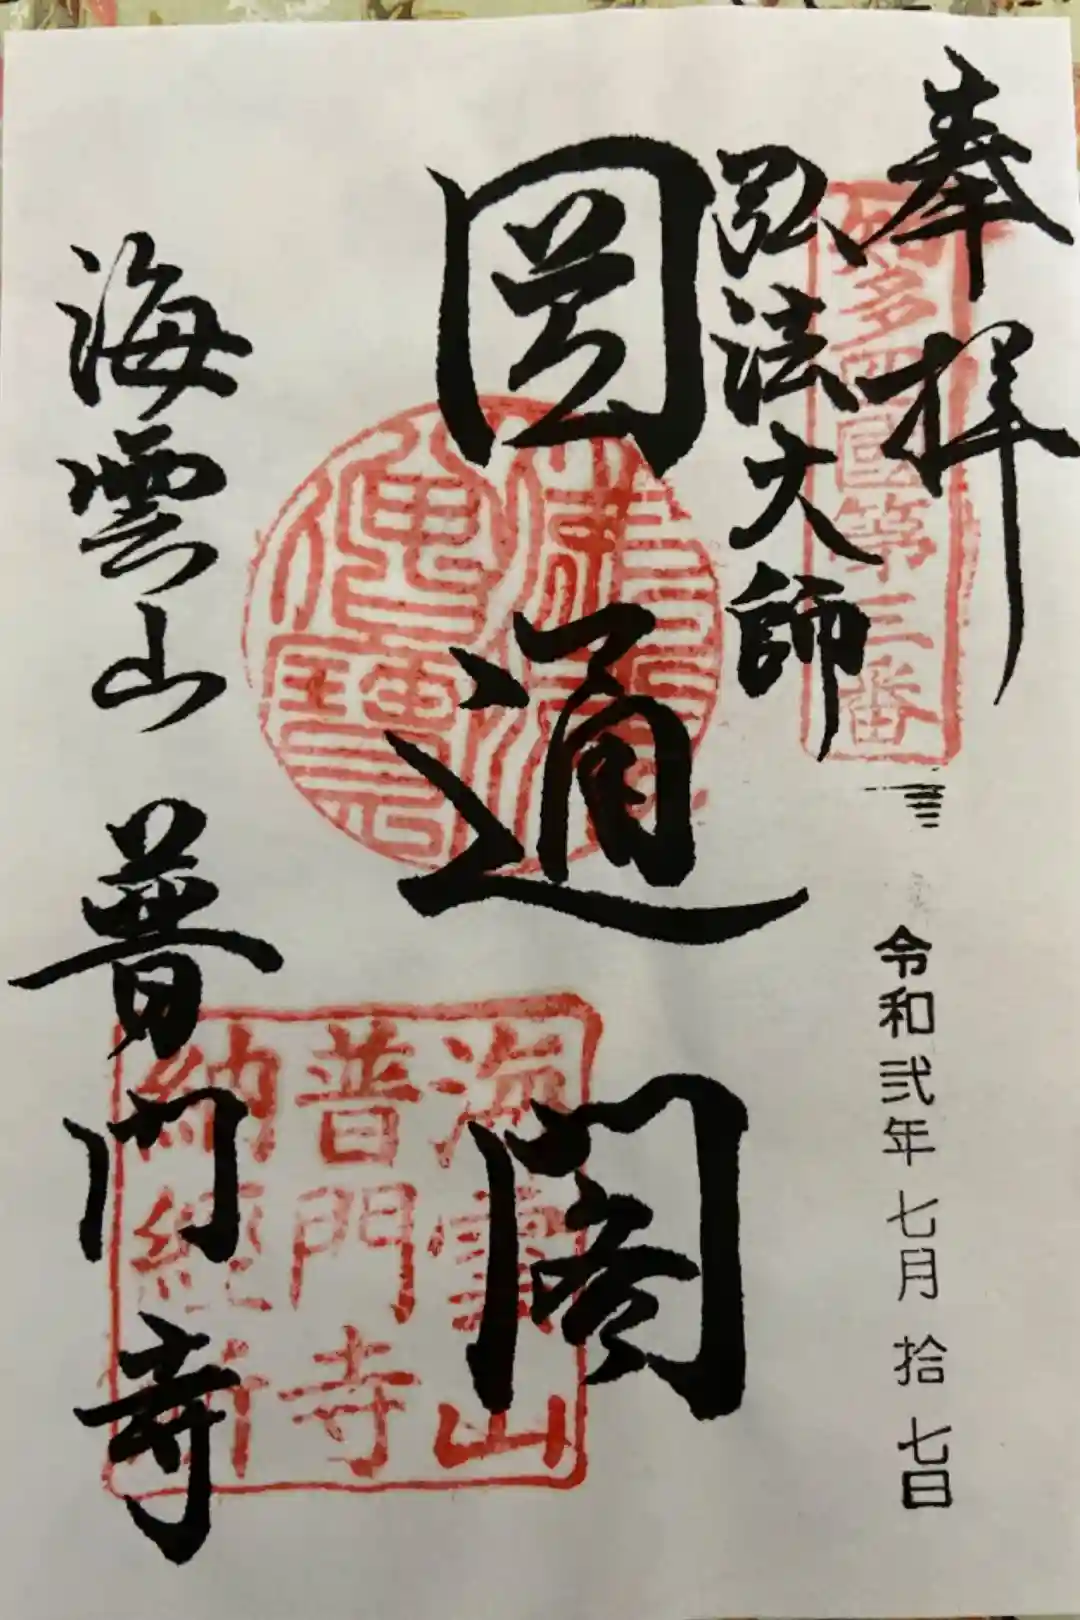 奉拝
知多四國第三番
令和弐年七月拾七日
弘法大師
圓通閣
佛法僧寶
海雲山
普門寺
納経所
海雲山 普門寺